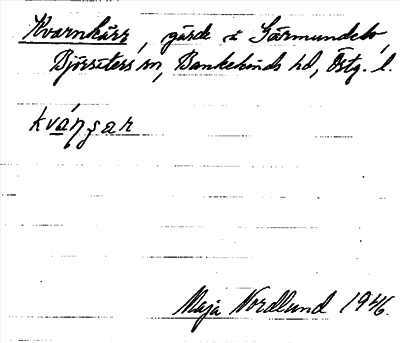 Kvarnkärr, gärde å Särmundebo,
Björsäters sn, Bankekinds hd, Östg. l.
kváŋsar
Maja Nordlund 1946.